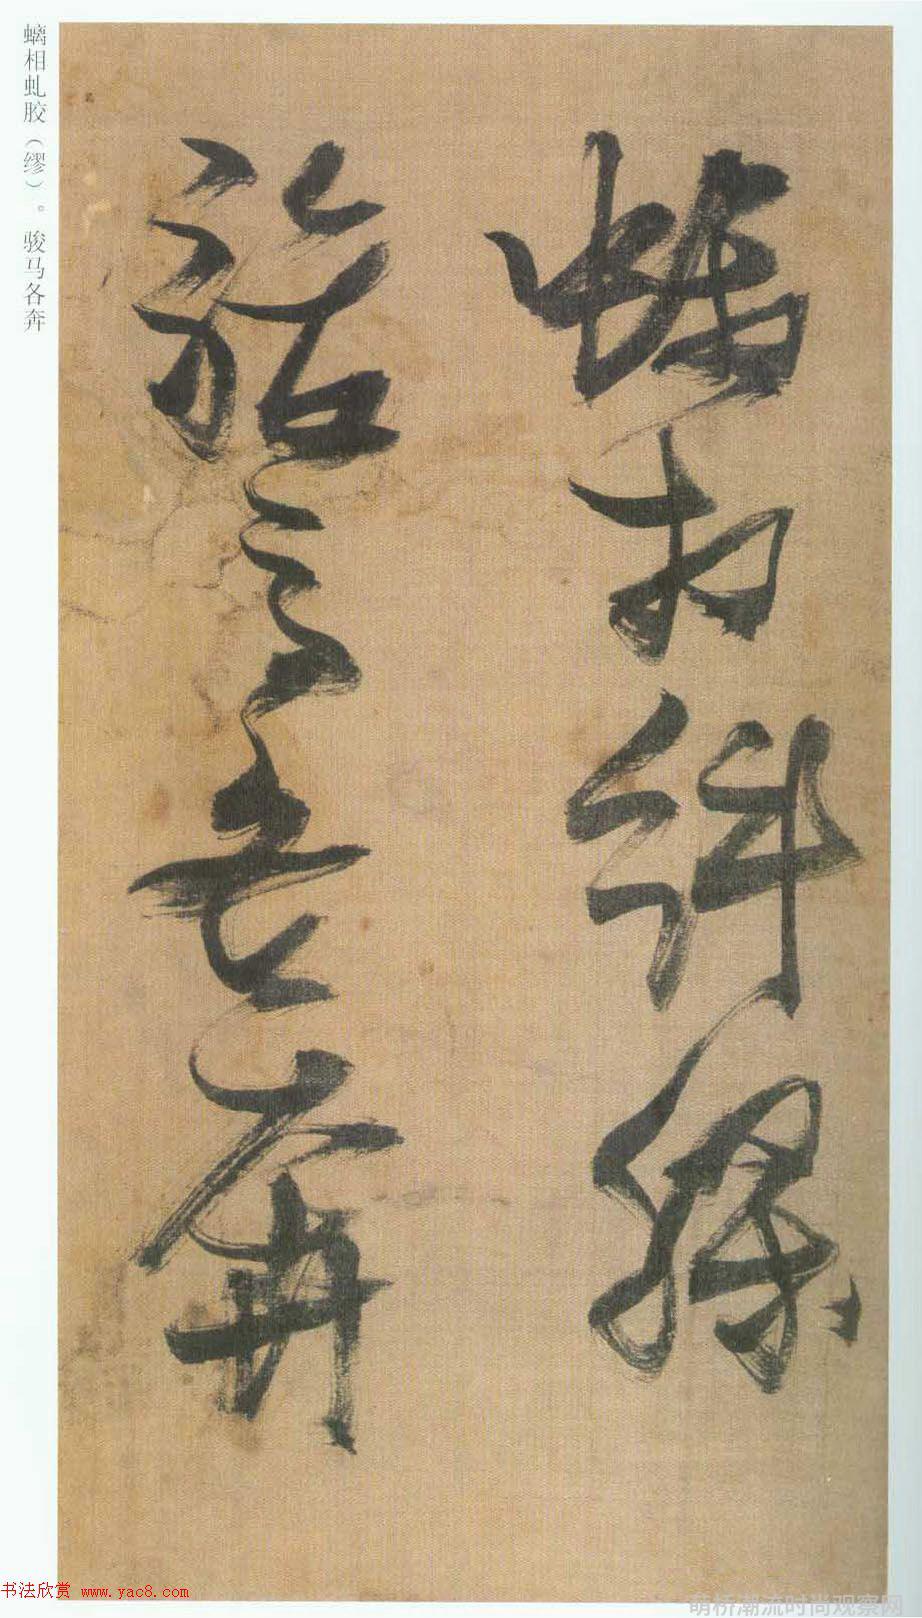 螭相虬胶(缪)。骏马各奔
螭相糾繆
奔
书法欣赏 www.yac8.com
萌桥潮流时尚观察网